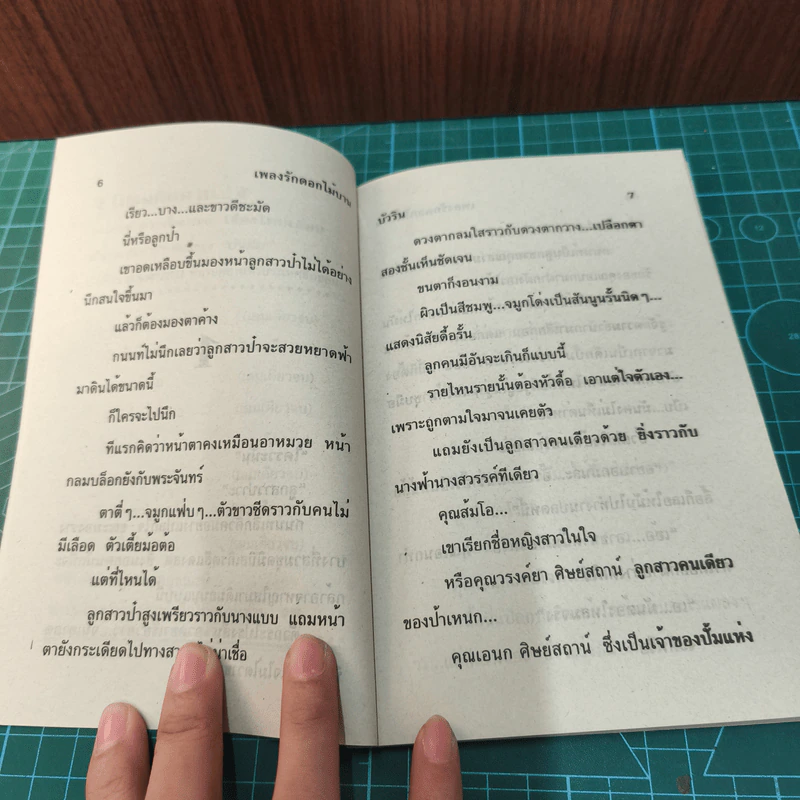 6
เพลงรักดอกไม้บาน
เรียว...บาง...และขาวดีชะมัด
นี่หรือลูกป๋า
เขาอดเหลือบขึ้นมองหน้าลูกสาวป๋าไม่ได้อย่าง
นึกสนใจขึ้นมา
แล้วก็ต้องมองตาค้าง
กนนท์ไม่นึกเลยว่าลูกสาวป๋าจะสวยหยาดฟ้า
มาดินได้ขนาดนี้
ก็ใครจะไปนึก
ทีแรกคิดว่าหน้าตาคงเหมือนอาหมวย หน้า
กลมบล็อกยังกับพระจันทร์
ตาตี่ๆ...จมูกแฟ่บๆ...ตัวขาวซีดราวกับคนไม่
มีเลือด ตัวเตี้ยม้อต้อ
แต่ที่ไหนได้
ลูกสาวป๋าสูงเพรียวราวกับนางแบบ แถมหน้า
ตายังกระเดียดไปทางสา น่าเชื่อ
บัวริน
7
ดวงตากลมใสราวกับดวงตากวาง...เปลือกตา
สองชั้นเห็นชัดเจน
ขนตาก็งอนงาม
ผิวเป็นสีชมพู...จมูกโด่งเป็นสันนูนรั้นนิดๆ...
แสดงนิสัยดื้อรั้น
ลูกคนมีอันจะเกินก็แบบนี้
รายไหนรายนั้นต้องหัวดื้อ เอาแต่ใจตัวเอง...
เพราะถูกตามใจมาจนเคยตัว
แถมยังเป็นลูกสาวคนเดียวด้วย ยิ่งราวกับ
นางฟ้านางสวรรค์ทีเดียว
คุณส้มโอ...
เขาเรียกชื่อหญิงสาวในใจ
หรือคุณวรงค์ยา ศิษย์สถาน์ ลูกสาวคนเดียว
ของป๋าเหนก...
คุณเอนก ศิษย์สถาน์ ซึ่งเป็นเจ้าของปั้มแห่ง